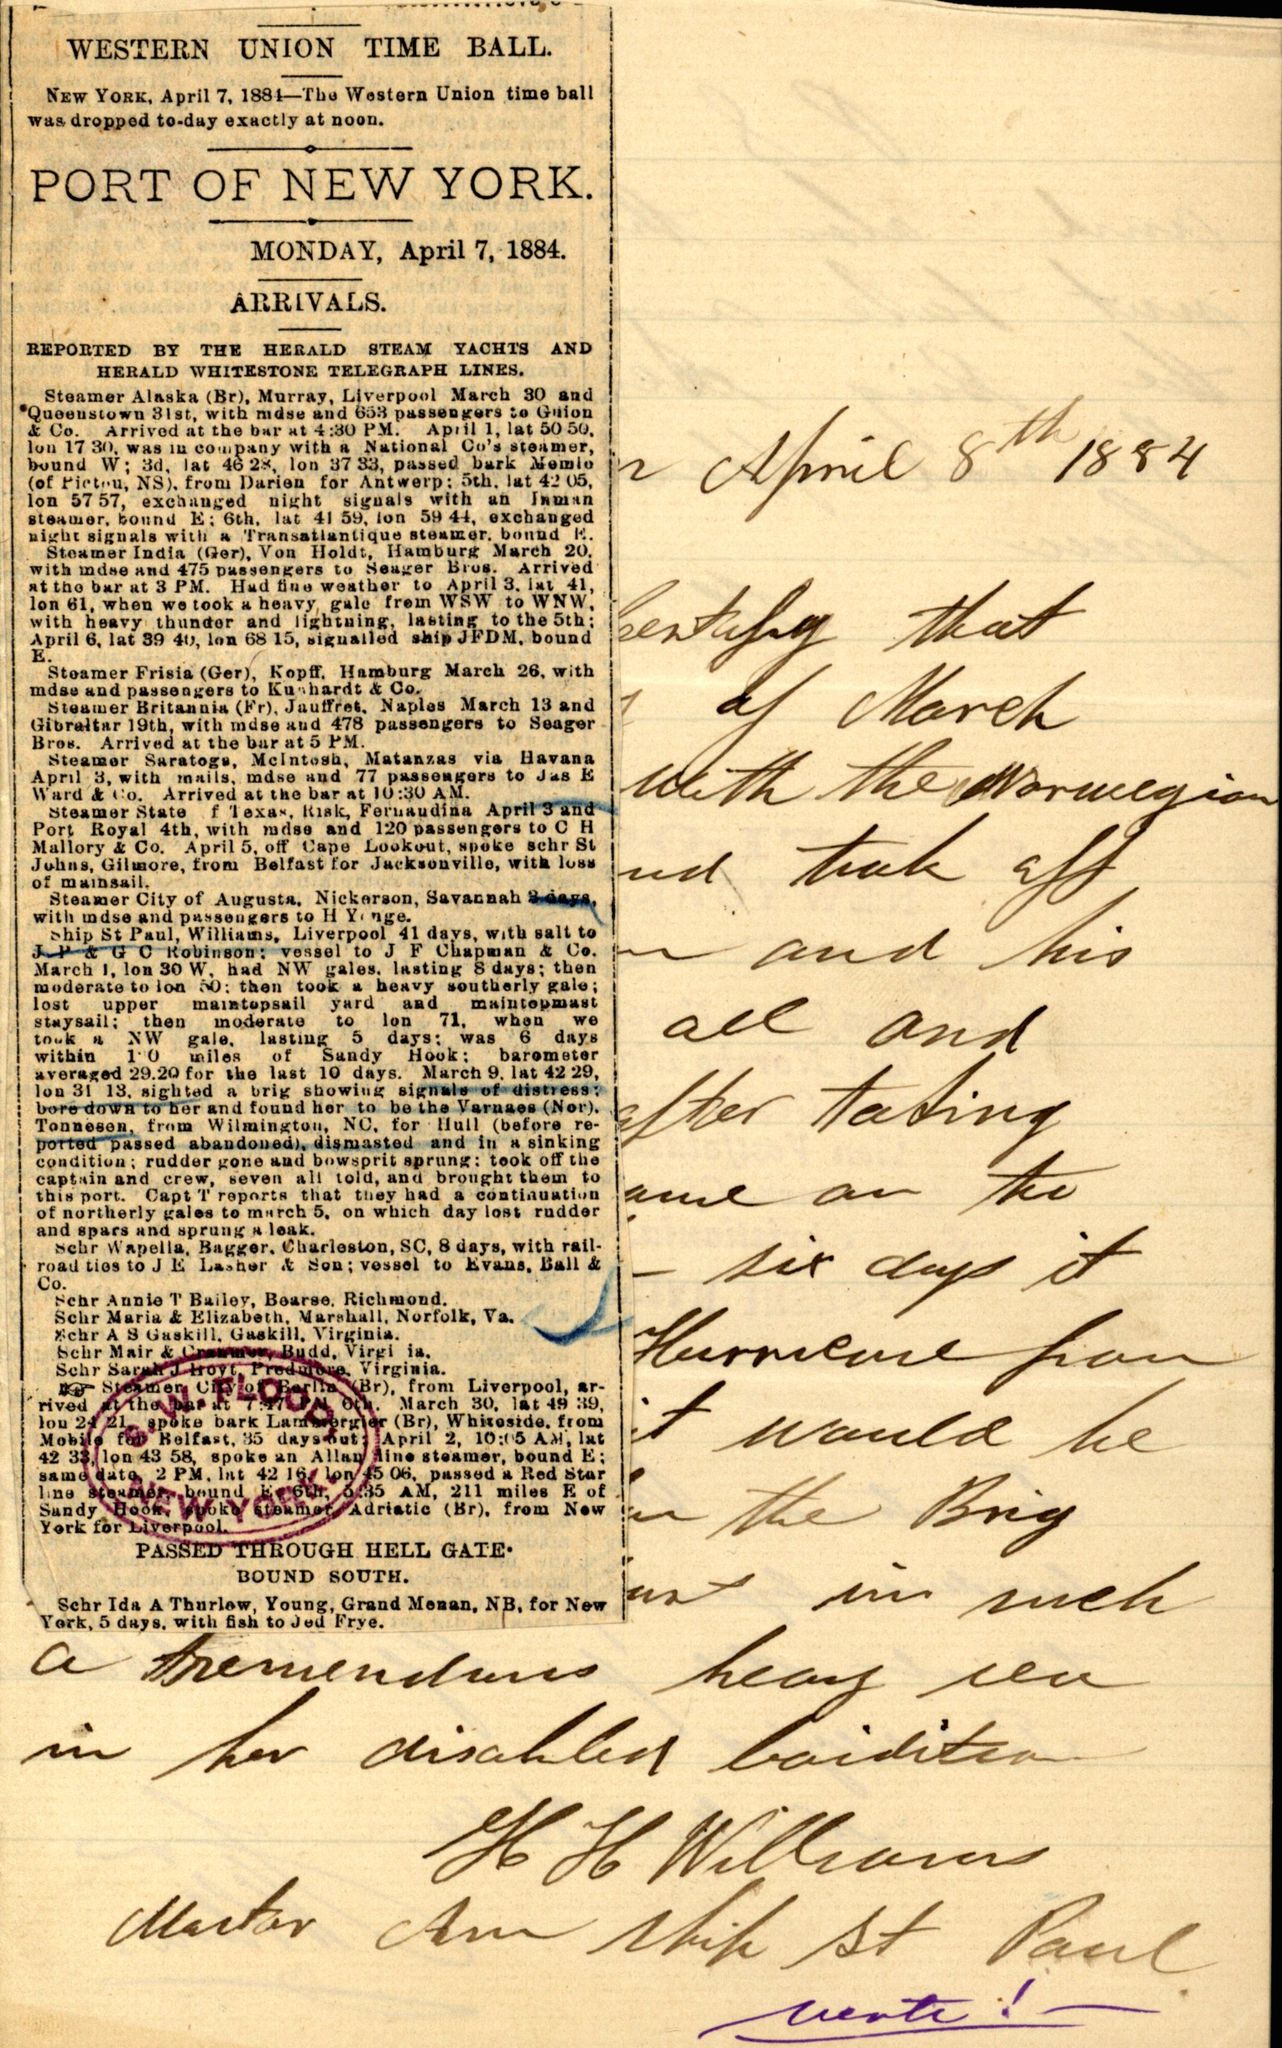 WESTERN UNION TIME BALL.
NEW YORK, April 7, 1884—The Western Union time ball
was dropped to-day exactly at noon.
PORT OF NEW YORK.
MONDAY, April 7, 1884.
ARRIVALS.
REPORTED BY THE HERALD STEAM YACHTS AND
HERALD WHITESTONE TELEGRAPH LINES.
Steamer Alaska (Br), Murray, Liverpool March 30 and
Queenstown 31st, with mdse and 653 passengers to Guion
& Co. Arrived at the bar at 4:30 PM. April 1, lat 50 50,
lon 17 30, was in company with a National Co's steamer,
bound W; 3d, lat 46 28, lon 37 33, passed bark Memlo
(of Pictou, NS), from Darien for Antwerp; 5th, lat 42 05,
lon 57 57, exchanged night signals with an Inman
steamer, bound E; 6th, lat 41 59, lon 59 44, exchanged
night signals with a Transatlantique steamer, bound E.
Steamer India (Ger), Von Holdt, Hamburg March 20,
with mdse and 475 passengers to Seager Bros. Arrived
at the bar at 3 PM. Had fine weather to April 3, lat 41,
lon 61, when we took a heavy gale from WSW to WNW,
with heavy thunder and lightning, lasting to the 5th;
April 6, lat 39 40, lon 68 15, signalled ship JFDM, bound
E.
Steamer Frisia (Ger), Kopff, Hamburg March 26, with
mdse and passengers to Kunhardt & Co.
Steamer Britannia (Fr), Jauffret, Naples March 13 and
Gibraltar 19th, with mdse and 478 passengers to Seager
Bros. Arrived at the bar at 5 PM.
Steamer Saratoga, McIntosh, Matanzas via Havana
April 3, with mails, mdse and 77 passengers to Jas E
Ward & Co. Arrived at the bar at 10:30 AM.
Steamer State f Texas, Risk, Fernandina April 3 and
Port Royal 4th, with mdse and 120 passengers to C H
Mallory & Co. April 5, off Cape Lookout, spoke schr St
Johns, Gilmore, from Belfast for Jacksonville, with loss
of mainsail.
Steamer City of Augusta, Nickerson, Savannah 3 days,
with mdse and passengers to H Yonge.
Ship St Paul, Williams, Liverpool 41 days, with salt to
J P & G C Robinson; vessel to J F Chapman & Co.
March 1, lon 30 W, had NW gales, lasting 8 days; then
moderate to lon 50; then took a heavy southerly gale;
lost upper maintopsail yard and maintopmast
staysail; then moderate to lon 71, when we
took a NW gale, lasting 5 days; was 6 days
within 1 0 miles of Sandy Hook; barometer
averaged 29.20 for the last 10 days. March 9, lat 42 29,
lon 31 13, sighted a brig showing signals of distress;
bore down to her and found her to be the Varnaes (Nor),
Tonnesen, from Wilmington, NC, for Hull (before re-
ported passed abandoned), dismasted and in a sinking
condition; rudder gone and bowsprit sprung; took off the
captain and crew, seven all told, and brought them to
this port. Capt T reports that they had a continuation
of northerly gales to march 5, on which day lost rudder
and spars and sprung a leak.
Schr Wapella, Bagger, Charleston, SC, 8 days, with rail-
road ties to J E Lasher & Son; vessel to Evans, Ball &
Co.
Schr Annie T Bailey, Bearse, Richmond.
Schr Maria & Elizabeth, Marshall, Norfolk, Va.
Schr A S Gaskill, Gaskill, Virginia.
Schr Mair & Cranmer, Budd, Virgi ia.
Schr Sarah J Hoyt, Predmore, Virginia.
☞ Steamer City of Berlin (Br), from Liverpool, ar-
rived at the bar at 7:47 PM 6th. March 30, lat 49 39,
lon 24 21, spoke bark Lammergier (Br), Whiteside, from
Mobile for Belfast, 35 days out; April 2, 10:05 AM, lat
42 33, lon 43 58, spoke an Allan line steamer, bound E;
same date, 2 PM, lat 42 16, lon 45 06, passed a Red Star
line steamer, bound E; 6th, 5:35 AM, 211 miles E of
Sandy Hook, spoke steamer Adriatic (Br), from New
York for Liverpool.
S. W. FLOOD
NEW YORK.
PASSED THROUGH HELL GATE.
BOUND SOUTH.
Schr Ida A Thurlow, Young, Grand Menan, NB, for New
York, 5 days, with fish to Jed Frye.
April 8th 1884
that
of March
with the Norwegian
took off
and his
all and
after taking
on the
six days it
Hurricane from
it would be
the Brig
in such
a tremendous heavy sea
in her disabled condition
H H Williams
Master Am ship St Paul
verte!